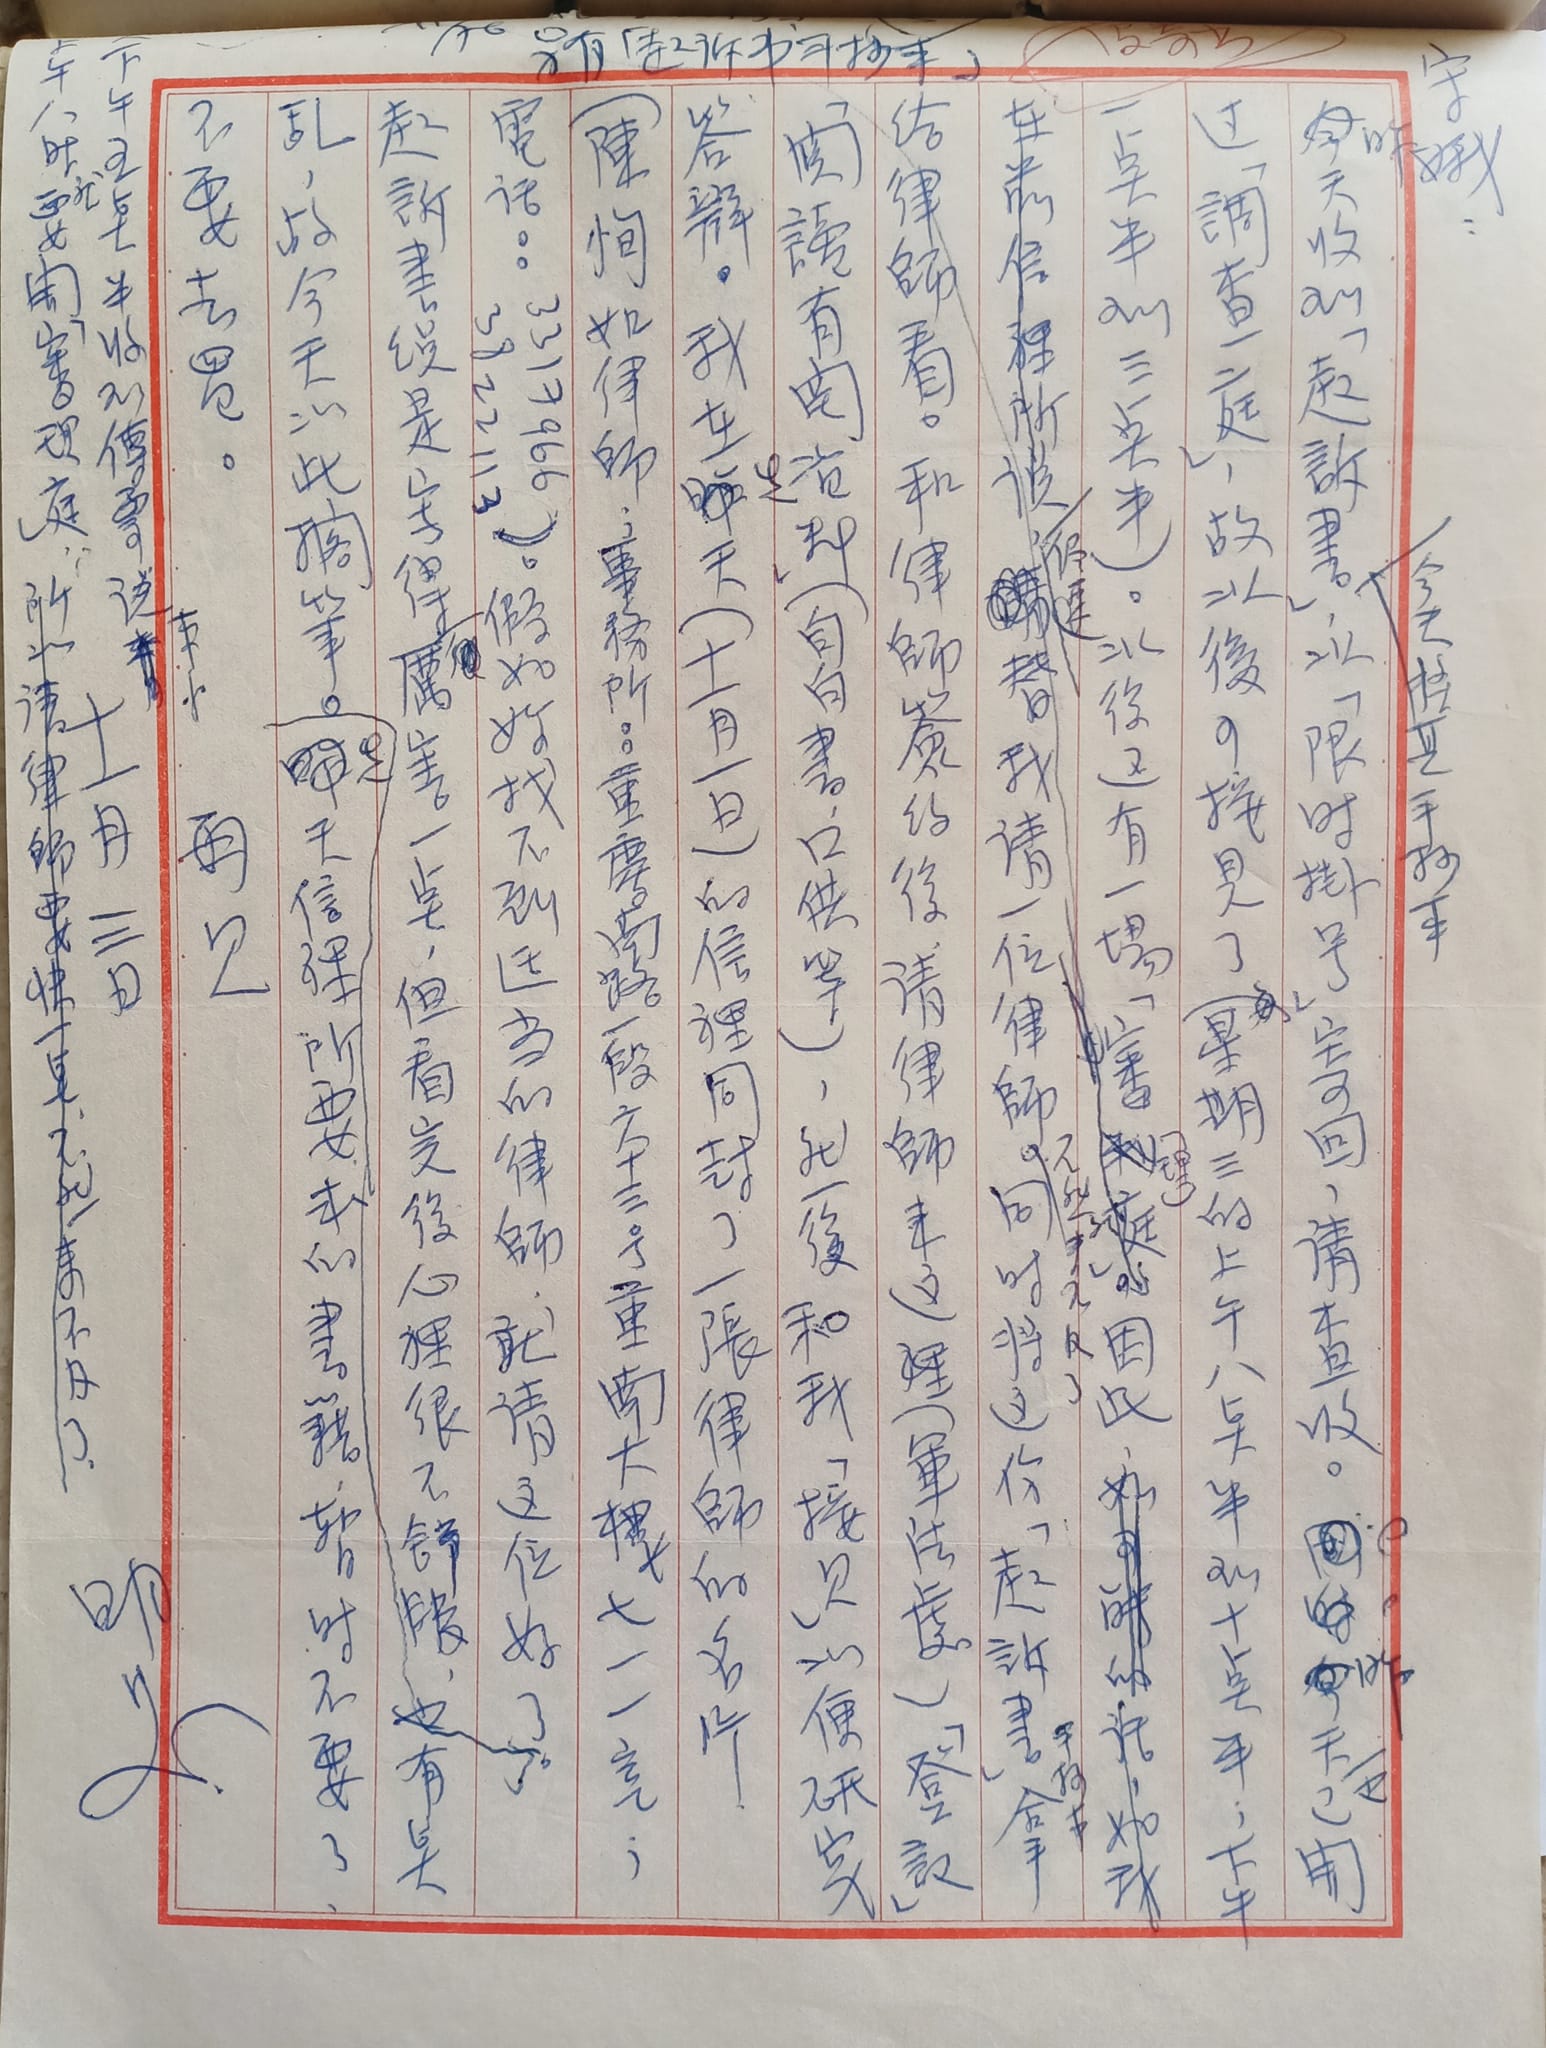 字娥：
今天整頁手抄本
昨天收到「起訴書」，以「限时掛号」寄回，请查收。昨天已開
过「調查二庭」，故以後可接見了（每星期三的上午八点半到十点半；下午
一点半到三点半）。以後还有一場「審理庭」因此，
在出信裡所谈，仍是替我请一位律師。同时將这份「起訴書」手抄本拿
给律師看。和律師簽约後，请律師来这裡（軍法處）「登記」
「閱讀有関資料」（自白書、口供等），然後和我「接见」以便研究
答辯。我在先天（十一月一日）的信裡同封了一張律師的名片
（陳恂如律師；事務所：重慶南路一段六十三号重南大樓七一一室；
電話：3317966 3822113）。假如妳找不到适当的律師，就请这位好了。
起訴書缐是寫得厲害一点，但看完後心裡很不舒服，也有点
乱，故今天以此搁筆。先天信裡所要求的書籍，暂时不要了，
不要去買。
再见
十一月三日
明
下午五点半收到傳票
午八时就要開「審理庭」：所以请律師要快一点，不然，来不及了。
只有「起訴书手抄本」